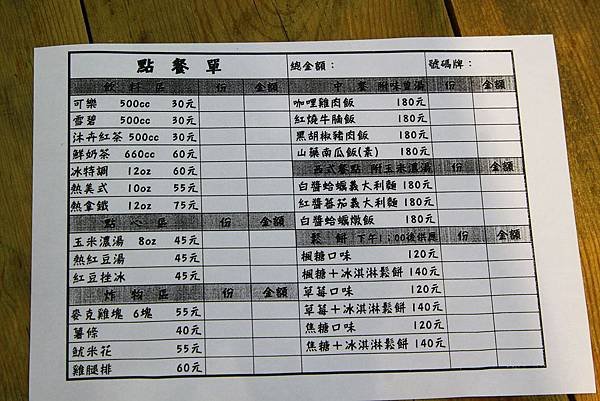 點餐單 總金額： 號碼牌：
飲料區 份 金額
可樂 500cc 30元
雪碧 500cc 30元
沐卉紅茶 500cc 30元
鮮奶茶 660cc 60元
冰特調 12oz 60元
熱美式 10oz 55元
熱拿鐵 12oz 75元
點心區 份 金額
玉米濃湯 8oz 45元
熱紅豆湯 45元
紅豆挫冰 45元
炸物區 份 金額
麥克雞塊 6塊 55元
薯條 40元
魷米花 55元
雞腿排 60元
中餐 附味噌湯 份 金額
咖哩雞肉飯 180元
紅燒牛腩飯 180元
黑胡椒豬肉飯 180元
山藥南瓜飯(素) 180元
西式餐點 附玉米濃湯 份 金額
白醬蛤蠣義大利麵 180元
紅醬蕃茄義大利麵 180元
白醬蛤蠣燉飯 180元
鬆餅 下午1;00後供應 份 金額
楓糖口味 120元
楓糖+冰淇淋鬆餅 140元
草莓口味 120元
草莓+冰淇淋鬆餅 140元
焦糖口味 120元
焦糖+冰淇淋鬆餅 140元